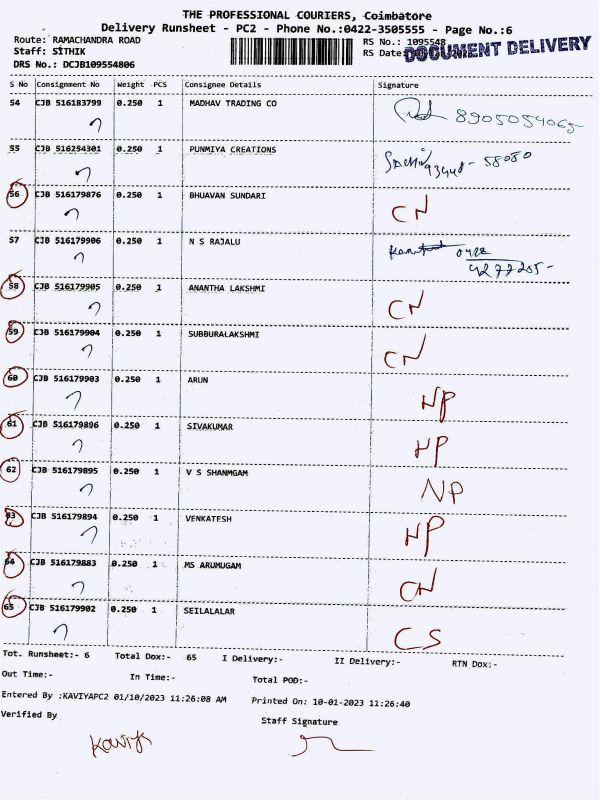 THE PROFESSIONAL COURIERS, Coimbatore
Delivery Runsheet - PC2 - Phone No.:0422-3505555 - Page No.:6
Route: RAMACHANDRA ROAD RS No.: 1095548
Staff: SITHIK RS Date: DOCUMENT DELIVERY
DRS No.: DCJB109554806
S No Consignment No Weight PCS Consignee Details Signature
54 CJB 516183799 0.250 1 MADHAV TRADING CO 8905054065
55 CJB 516254301 0.250 1 PUNMIYA CREATIONS
56 CJB 516179876 0.250 1 BHUAVAN SUNDARI CN
57 CJB 516179906 0.250 1 N S RAJALU 0422
4277205-
58 CJB 516179905 0.250 1 ANANTHA LAKSHMI CN
59 CJB 516179904 0.250 1 SUBBURALAKSHMI CN
60 CJB 516179903 0.250 1 ARUN NP
61 CJB 516179896 0.250 1 SIVAKUMAR NP
62 CJB 516179895 0.250 1 V S SHANMGAM NP
63 CJB 516179894 0.250 1 VENKATESH NP
64 CJB 516179883 0.250 1 MS ARUMUGAM CN
65 CJB 516179902 0.250 1 SEILALALAR CS
Tot. Runsheet:- 6 Total Dox:- 65 I Delivery:- II Delivery:- RTN Dox:-
Out Time:- In Time:- Total POD:-
Entered By :KAVIYAPC2 01/10/2023 11:26:08 AM Printed On: 10-01-2023 11:26:40
Verified By Staff Signature